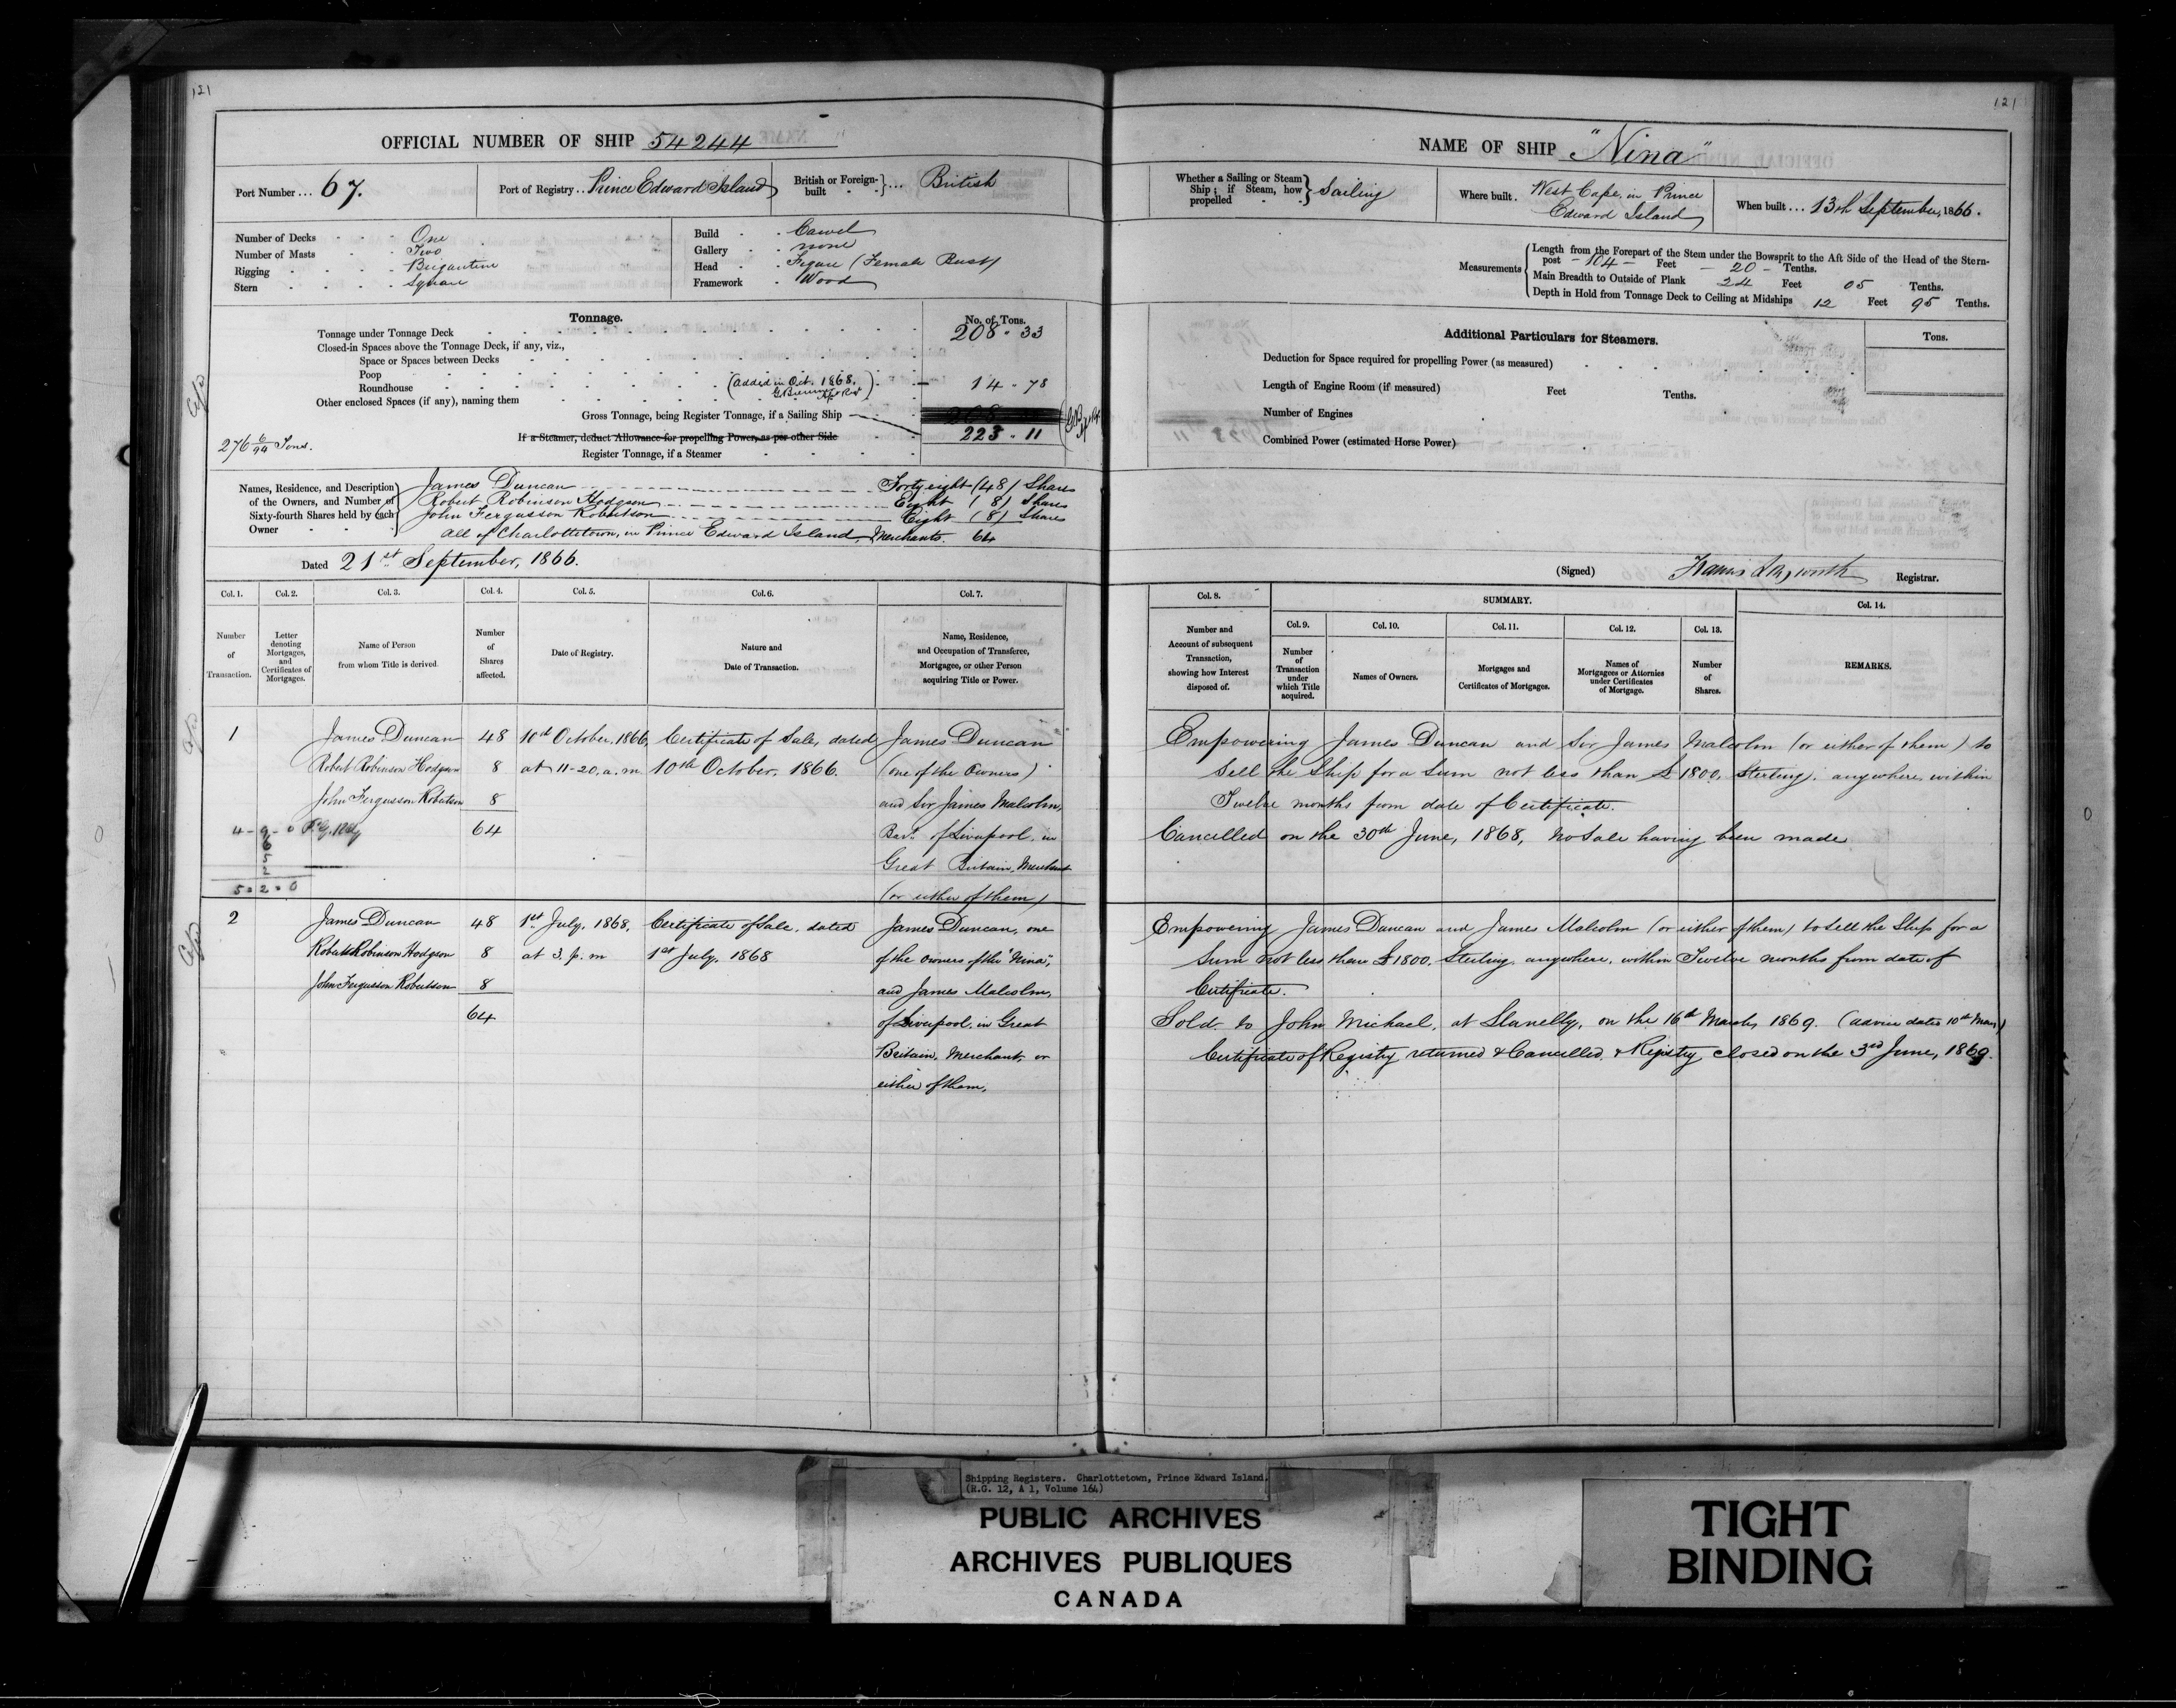 121
OFFICIAL NUMBER OF SHIP 54244
Port Number ... 67.
Port of Registry .. Prince Edward Island
British or Foreign-built ... British
Number of Decks One
Number of Masts Two
Rigging Brigantine
Stern Square
Build Carvel
Gallery none
Head Figure (Female Bust)
Framework Wood
Tonnage.
No. of Tons.
Tonnage under Tonnage Deck 208 . 33
Closed-in Spaces above the Tonnage Deck, if any, viz.,
Space or Spaces between Decks
Poop
Roundhouse (added in Oct. 1868. 14 . 78
Other enclosed Spaces (if any), naming them
Gross Tonnage, being Register Tonnage, if a Sailing Ship
223 . 11
If a Steamer, deduct Allowance for propelling Power, as per other Side
Register Tonnage, if a Steamer
276 6/94 Tons.
Names, Residence, and Description
of the Owners, and Number of
Sixty-fourth Shares held by each
Owner
James Duncan Forty eight (48) Shares
Robert Robinson Hodgson Eight (8) Shares
John Fergusson Robertson Eight (8) Shares
all of Charlottetown, in Prince Edward Island, Merchants. 64
Dated 21st September, 1866.
Col. 1. Col. 2. Col. 3. Col. 4. Col. 5. Col. 6. Col. 7.
Number of Transaction.
Letter denoting Mortgages, and Certificates of Mortgages.
Name of Person from whom Title is derived.
Number of Shares affected.
Date of Registry.
Nature and Date of Transaction.
Name, Residence, and Occupation of Transferee, Mortgagee, or other Person acquiring Title or Power.
1 James Duncan 48 10th October, 1866, Certificate of Sale, dated James Duncan
Robert Robinson Hodgson 8 at 11-20. a.m 10th October, 1866. (one of the Owners)
John Fergusson Robertson 8 and Sir James Malcolm,
64 Bart. of Liverpool, in
Great Britain, Merchant
(or either of them)
4 - 9 - 0
5 . 2 . 0
2 James Duncan 48 1st July, 1868, Certificate of Sale, dated James Duncan, one
Robert Robinson Hodgson 8 at 3. p. m 1st July, 1868 of the Owners of the "Nina",
John Fergusson Robertson 8 and James Malcolm,
64 of Liverpool, in Great
Britain, Merchant, or
either of them,
121
NAME OF SHIP "Nina"
Whether a Sailing or Steam Ship; if Steam, how propelled Sailing
Where built . West Cape, in Prince
Edward Island
When built ... 13th September, 1866.
Measurements
Length from the Forepart of the Stem under the Bowsprit to the Aft Side of the Head of the Stern-
post - 104 - Feet - 20 - Tenths.
Main Breadth to Outside of Plank 24 Feet 05 Tenths.
Depth in Hold from Tonnage Deck to Ceiling at Midships 12 Feet 95 Tenths.
Additional Particulars for Steamers.
Tons.
Deduction for Space required for propelling Power (as measured)
Length of Engine Room (if measured) Feet Tenths.
Number of Engines
Combined Power (estimated Horse Power)
(Signed) Francis Longworth Registrar.
Col. 8. SUMMARY. Col. 14.
Col. 9. Col. 10. Col. 11. Col. 12. Col. 13.
Number and Account of subsequent Transaction, showing how Interest disposed of.
Number of Transaction under which Title acquired.
Names of Owners.
Mortgages and Certificates of Mortgages.
Names of Mortgagees or Attornies under Certificates of Mortgage.
Number of Shares.
REMARKS.
Empowering James Duncan and Sir James Malcolm (or either of them) to
sell the Ship for a sum not less than £1800, Sterling, anywhere within
Twelve months from date of Certificate.
Cancelled on the 30th June, 1868, no Sale having been made
Empowering James Duncan and James Malcolm (or either of them) to sell the Ship for a
Sum not less than £1800. Sterling, anywhere, within Twelve months from date of
Certificate.
Sold to John Michael, at Llanelly, on the 16th March 1869. (advice dated 10th May)
Certificate of Registry returned & Cancelled, & Registry closed on the 3rd June, 1869.
Shipping Registers. Charlottetown, Prince Edward Island.
(R.G. 12, A 1, Volume 164)
PUBLIC ARCHIVES
ARCHIVES PUBLIQUES
CANADA
TIGHT
BINDING